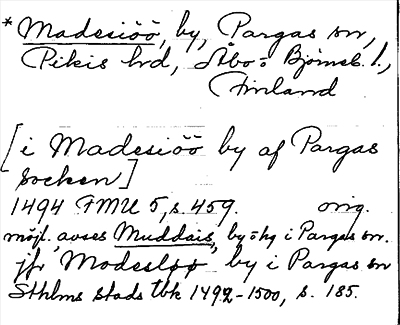 * Madesiöö, by, Pargas sn,
Pikis hrd, Åbo o Björneb. l.,
Finland
[i Madesiöö by af Pargas
socken]
1494 FMU 5, s. 459. orig.
möjl. avses Muddais, by o hg i Pargas sn.
jfr Modesløø by i Pargas sn
Sthlms stads tbk 1492-1500, s. 185.